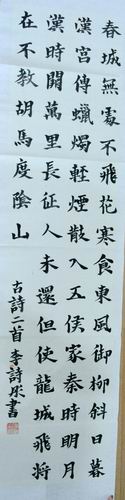 春城無處不飛花寒食東風御柳斜日暮
漢宮傳蠟燭輕煙散入五侯家秦時明月
漢時關萬里長征人未還但使龍城飛將
在不教胡馬度陰山
古詩二首李詩彤書